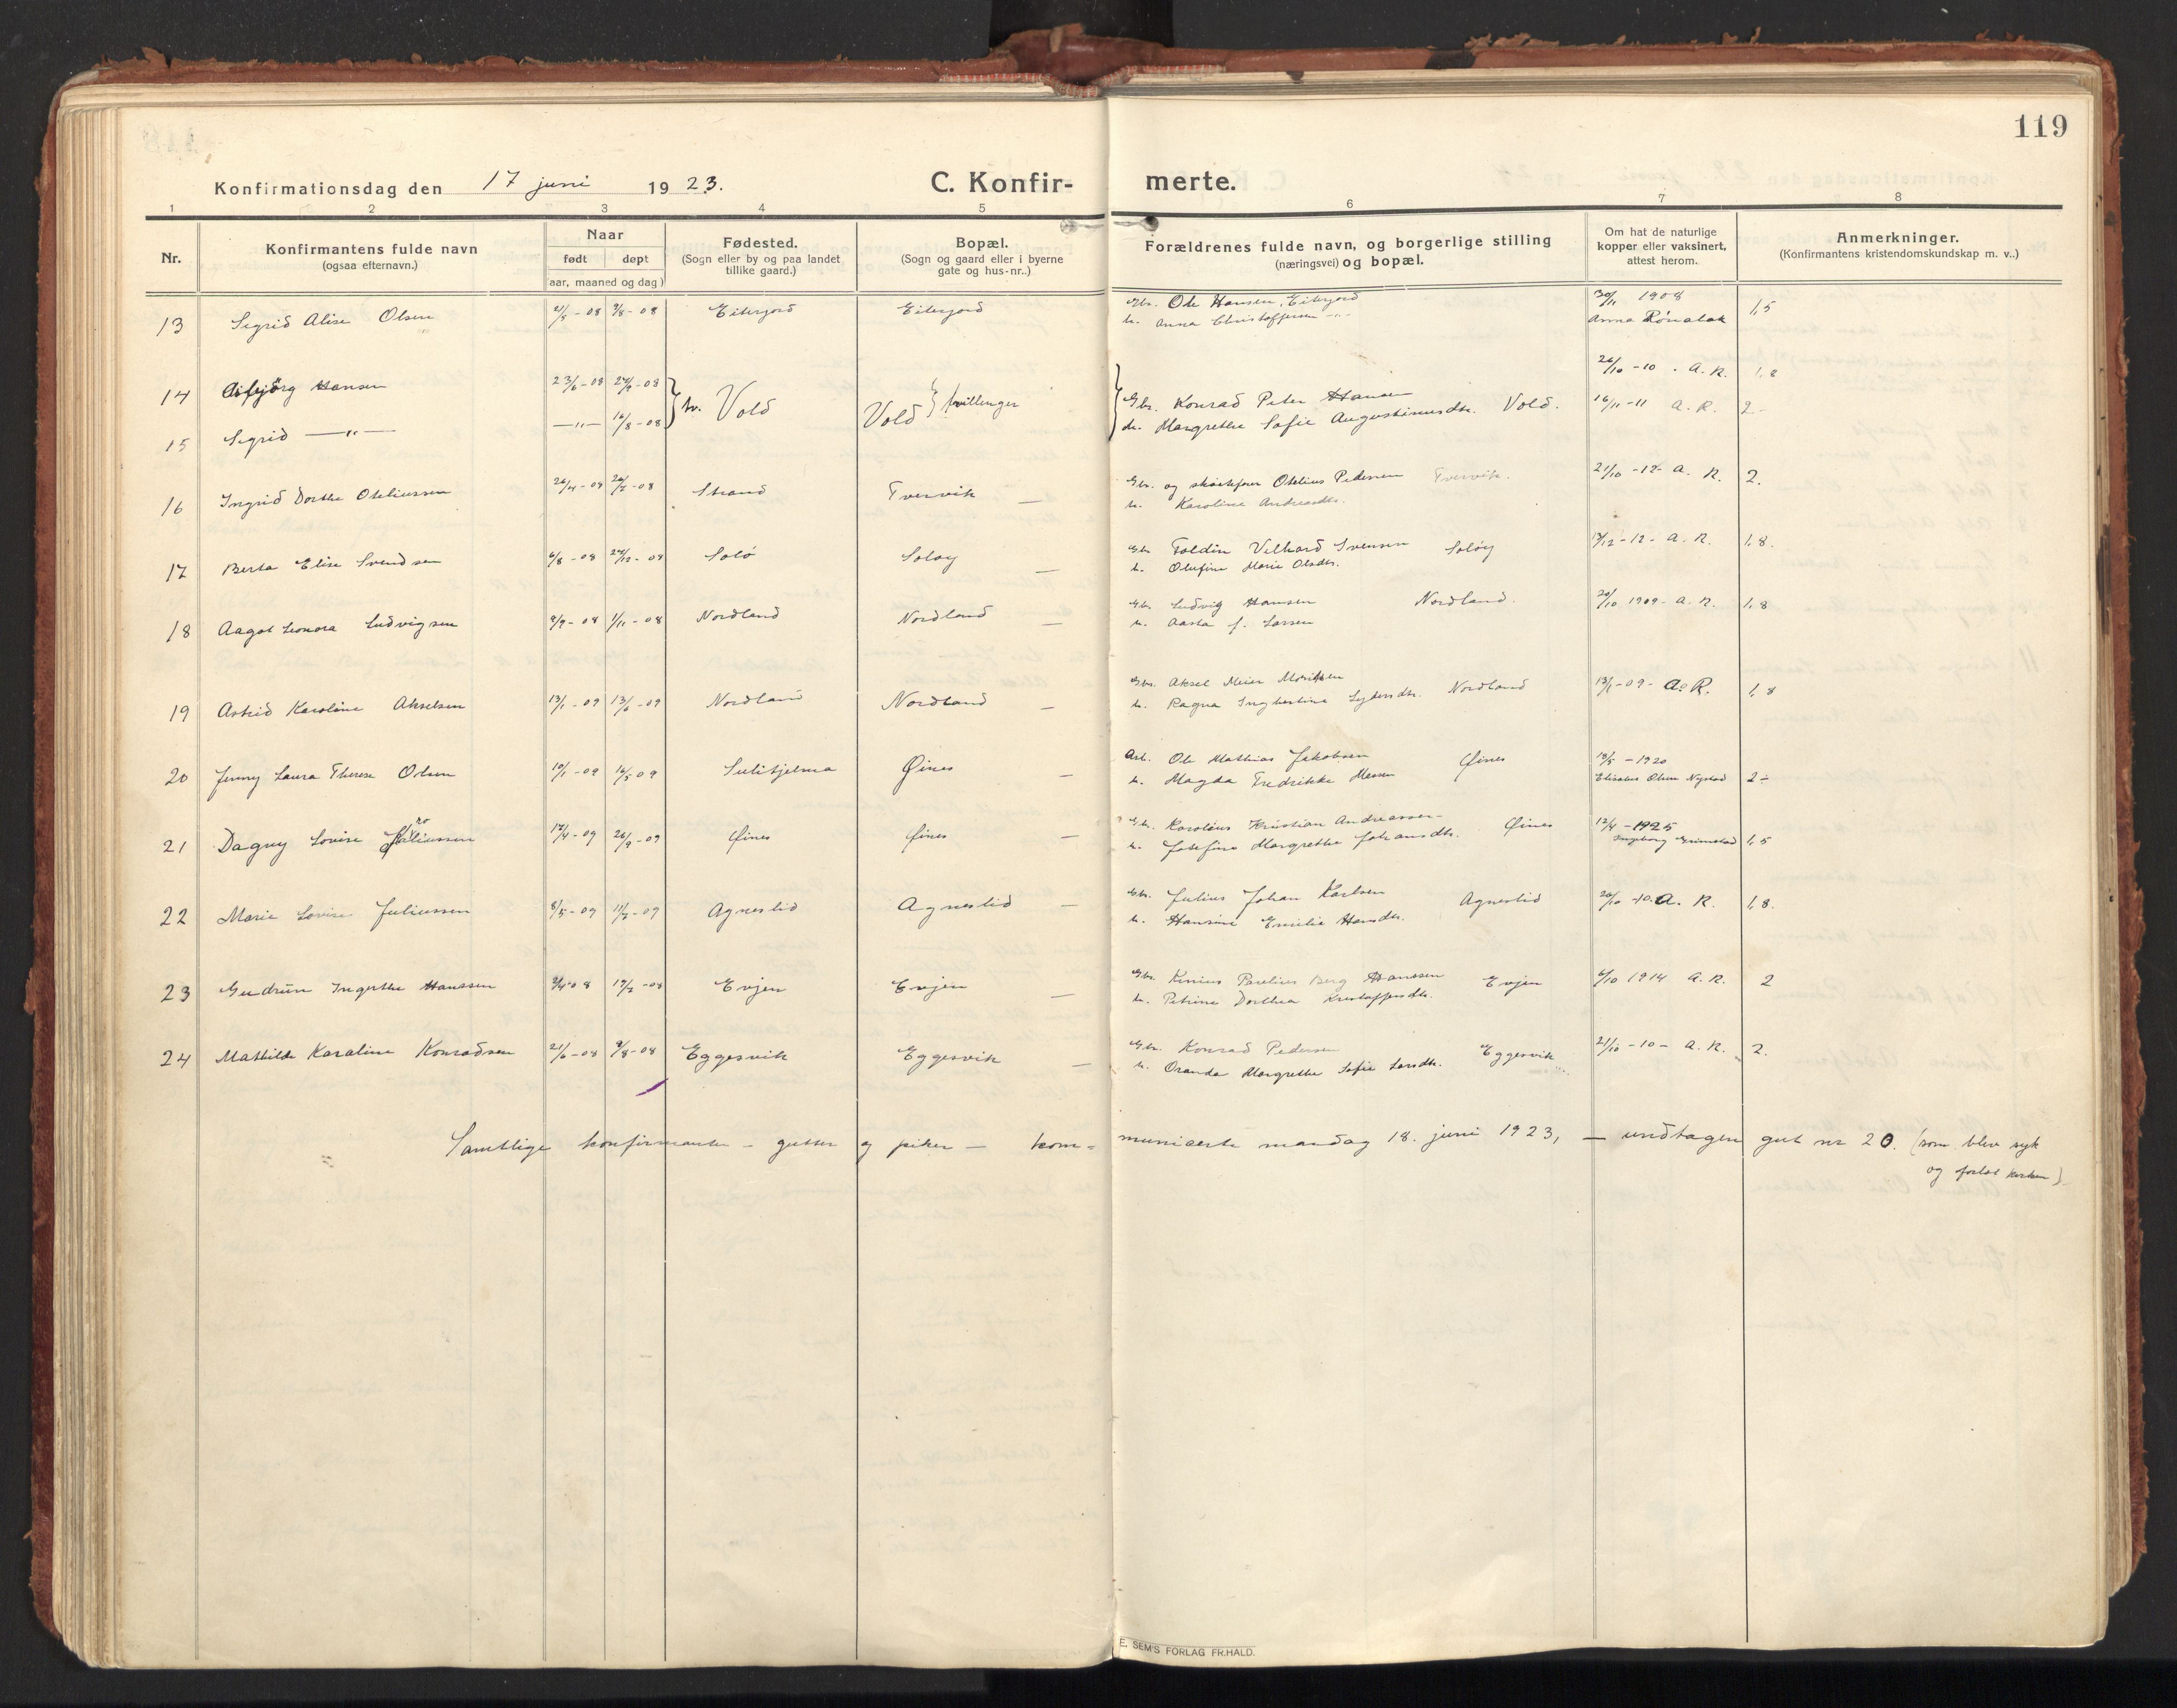 119
Konfirmationsdag den 17 juni 1923.
C. Konfirmerte.
1 2 3 4 5 6 7 8
Nr.
Konfirmantens fulde navn
(ogsaa efternavn.)
Naar
født døpt
aar, maaned og dag)
Fødested.
(Sogn eller by og paa landet
tillike gaard.)
Bopæl.
(Sogn og gaard eller i byerne
gate og hus-nr..)
Forældrenes fulde navn, og borgerlige stilling
(næringsvei) og bopæl.
Om hat de naturlige
kopper eller vaksinert,
attest herom.
Anmerkninger.
(Konfirmantens kristendomskundskap m. v..)
13 Sigrid Alise Olsen 2/5-08 9/8-08 Eiterjord Eiterjord Gbr. Ole Hansen, Eiterjord 30/11 1908 1,5
h. Anna Christoffersen -"- Anna Rønalak
14 Asbjørg Hansen 23/6-08 27/9-08 } tv. Vold Vold } tvillinger { Gbr. Konrad Peter Hansen 26/10-10. A. R. 1,8
15 Sigrid —"— —"— 16/8-08 h. Margrethe Sofie Augustinusdtr. Vold. 16/11-11 A. R. 2-
16 Ingrid Dorthe Oteliussen 26/4-08 26/7-08 Strand Tvervik — Gbr. og skorkjører Otelius Pedersen Tvervik. 21/10-12- A. R. 2.
h. Karoline Andreasdtr.
17 Berta Elise Svendsen 6/8-08 27/12-08 Solø Soløy — Gbr. Foldin Velhard Svensen Soløy 13/12-12- A. R. 1,8.
h. Olufine Marie Olsdtr.
18 Aagot Leonora Ludvigsen 9/9-08 1/11-08 Nordland Nordland — Gbr. Ludvig Hansen Nordland. 20/10 1909- A. R. 1,8
h. Aasta f. Larsen
19 Astrid Karoline Akselsen 13/1-09 13/6-09 Nordland Nordland — Gbr. Aksel Meier Moritsen Nordland 13/1-09- A. R. 1,8
h. Ragna Ingbertine
20 Jenny Laura Therese Olsen 10/1-09 16/5 09 Sulitjelma Øines — Arb. Ole Mathias Jakobsen Øines 18/5-1920
h. Magda Fredrikke Elisabet Olsen Nystad 2-
21 Dagny Lovise 17/4-09 26/9-09 Øines Øines — Gbr. Karolius Kristian Andreassen Øines 12/4-1925
h. Josefine Margrethe Johansdtr. Ingeborg Grimstad 1,5
22 Marie Lovise Juliussen 8/5-09 11/7-09 Agneslid Agneslid — Gbr. Julius Johan Karlsen Agneslid 20/10-10. A. R. 1,8.
h. Hansine Emilie Hansdtr.
23 Gudrun Ingerthe Hanssen 2/4-08 19/7-08 Evjen Evjen — Gbr. Kinius Parelius Berg Hanssen Evjen 6/10 1914 A. R. 2
h. Petrine Dorthea Kristoffersdtr.
24 Mathilde Karaline Konradsen 21/6-08 9/8-08 Eggesvik Eggesvik — Gbr. Konrad Pedersen Eggesvik 21/10-10- A. R. 2.
h. Oranda Margrethe Sofie Larsdtr.
Samtlige konfirmanter – gutter og piker – kom=municerte mandag 18. juni 1923, – undtagen gut nr 20. (som blev syk
og forlot kirken)
E. SEM'S FORLAG FR.HALD.